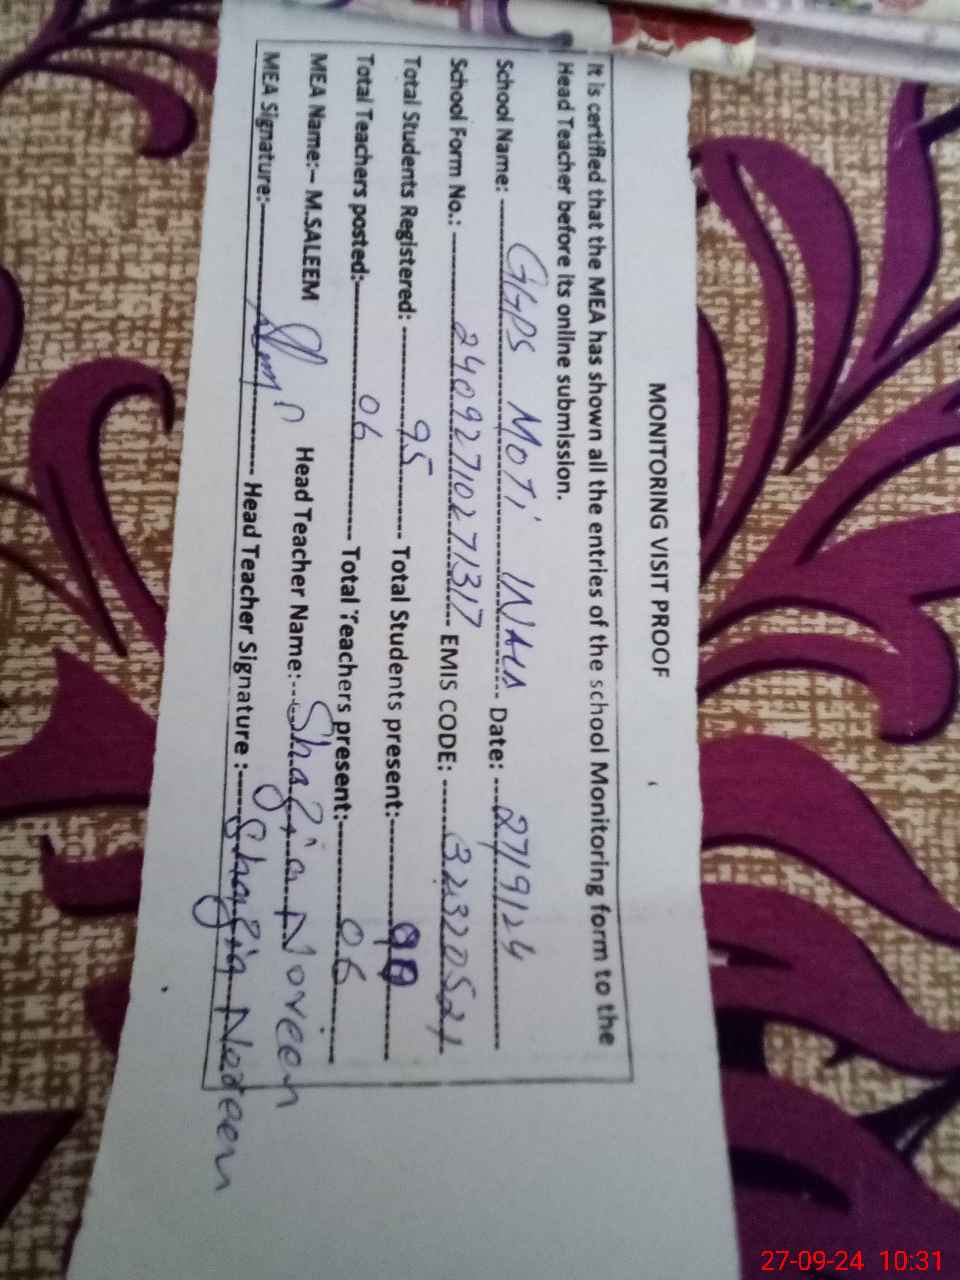 MONITORING VISIT PROOF
It is certified that the MEA has shown all the entries of the school Monitoring form to the
Head Teacher before its online submission.
School Name: GGPS MOTI WALA Date: 27/9/24
School Form No.: 24092710271317 EMIS CODE: 32320521
Total Students Registered: 95 Total Students present: 90
Total Teachers posted: 06 Total Teachers present: 06
MEA Name:- M.SALEEM Head Teacher Name: Shazia Noreen
MEA Signature: Head Teacher Signature : Shazia Noreen
27-09-24 10:31